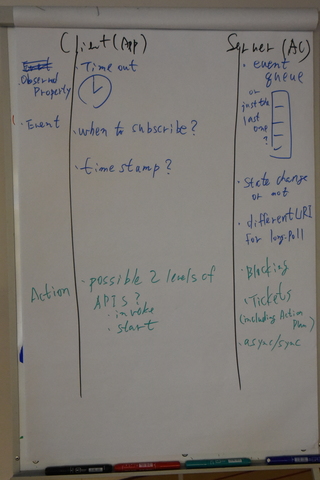 Client (App)
Server (AC)
Observed
Property
Time out
• event
queue
or
just the
last
one
?
• Event
• when to subscribe?
• time stamp?
• State change
or not
• different URI
for long-poll
Action
• possible 2 levels of
APIs?
• invoke
• start
• Blocking
• Tickets
(including Action
Plan)
• async/sync